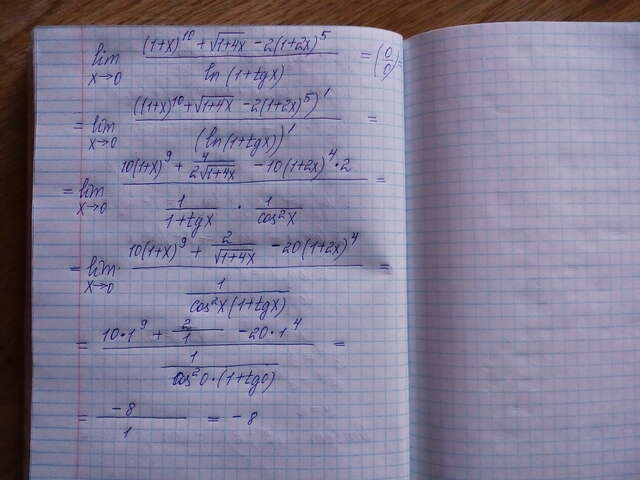 lim x→0 ((1+x)^10 + √(1+4x) - 2(1+2x)^5) / (ln(1+tgx)) = (0/0) =
= lim x→0 (((1+x)^10 + √(1+4x) - 2(1+2x)^5)') / ((ln(1+tgx))') =
= lim x→0 (10(1+x)^9 + 4/(2√(1+4x)) - 10(1+2x)^4 · 2) / (1/(1+tgx) · 1/(cos²x)) =
= lim x→0 (10(1+x)^9 + 2/√(1+4x) - 20(1+2x)^4) / (1/(cos²x(1+tgx))) =
= (10·1^9 + 2/1 - 20·1^4) / (1/(cos²0·(1+tg0))) =
= -8/1 = -8